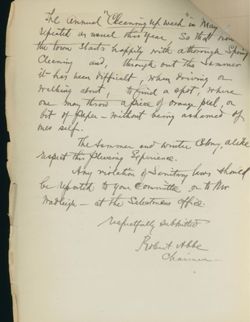 The Annual "Cleaning up week" in May
repeated as usual this Year. So that now
the town starts happily with a thorough Spring
Cleaning and, through out the Summer
it has been difficult, when driving or
walking about, to find a spot, where
one may throw a piece of orange peel, or
bit of paper - without being ashamed of
ones self.
The Summer and Winter Colony, alike
respect this pleasing Experience.
Any violation of Sanitary laws should
be reported to your Committee, or to Mr
at the Selectmens Office.
respectfully submitted
Robert Abbe
Chairman